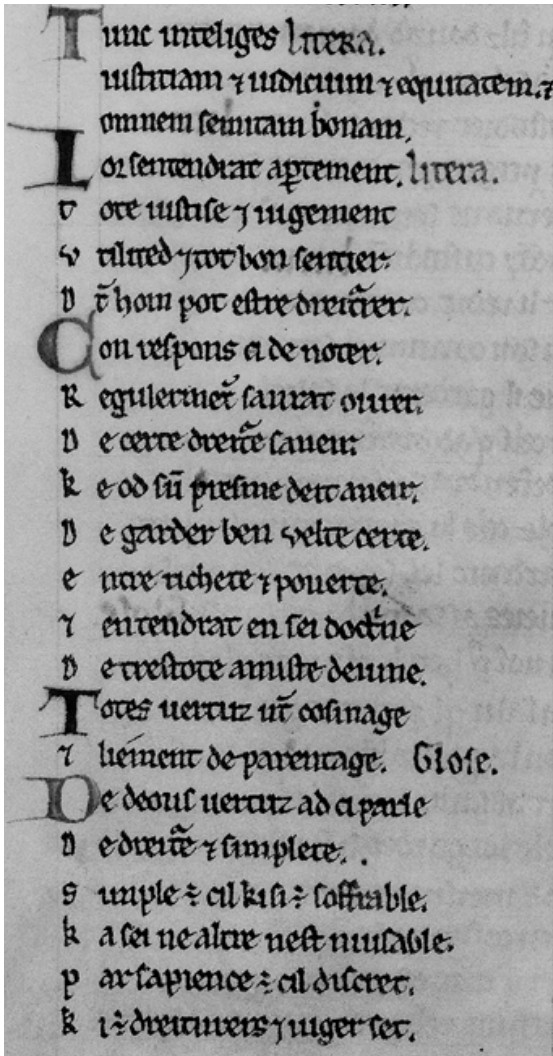 Tunc inteliges litera.
iustitiam ⁊ iudicium ⁊ equitatem. ⁊
omnem semitam bonam.
Lors entendrat ap̲tement. litera.
tote iustise ⁊ iugement
vtilited ⁊ tot bon sentier.
Dt̄ hom pot estre dreiturer.
Con respons ci de noter.
Regulermēt saurat ourer.
De certe dreitēe saueir
ke od sun presme deit aueir.
De garder ben uelte certe.
entre richete ⁊ pouerte.
⁊ entendrat en sei doctne
De trestote amiste deuine.
Totes uertuz unt cosinage
⁊ liement de parentage. Glose.
De deous uertuz ad ci parle
De dreitēe ⁊ simplete.
Simple ÷ cil ki si ÷ soffrable.
ka sei ne altre nest nuisable.
par sapience ÷ cil discret.
ki ÷ dreiturers ⁊ iuger set.